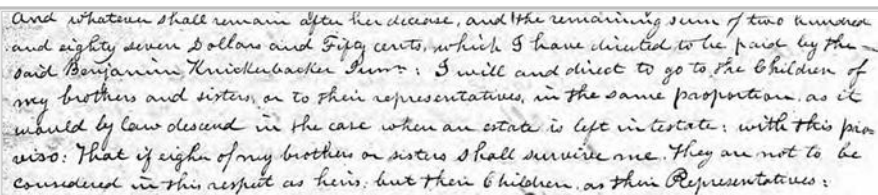 and whatever shall remain after her decease, and the remaining sum of two hundred
and eighty seven Dollars and Fifty cents, which I have directed to be paid by the
said Benjamin Knickerbacker Junr: I will and direct to go to the Children of
my brothers and sisters, or to their representatives, in the same proportion, as it
would by law descend in the case when an estate is left intestate: with this pro-
viso: That if eigher of my brothers or sisters shall survive me. They are not to be
considered in this respect as heirs: but their Children, as their Representatives: